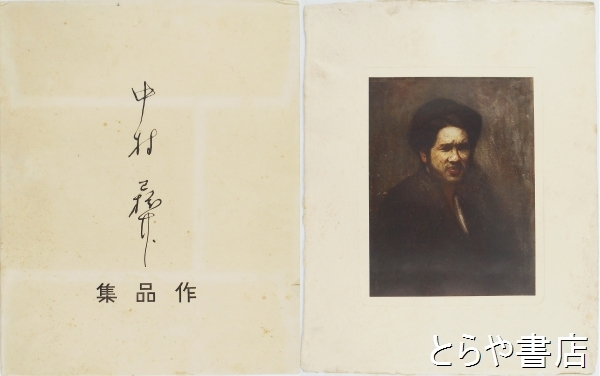 中村彝
作品集
とらや書店